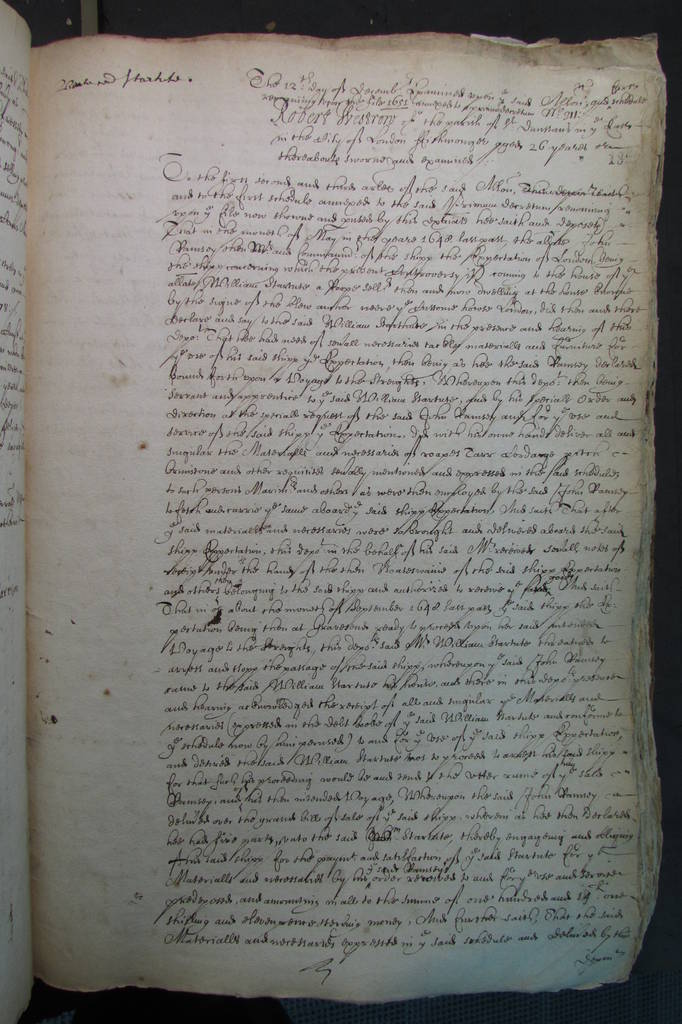 The 12th day of Decemb. Examined upon ye said Allon. and schedule
remaining upon the file 1651 annexed to
Robert Westrory of the parish of St Dunstans in ye East
in the Citty of London Fishmonger aged 26 yeares or
thereabouts sworne and examined
To the first second and third arles of the said Allon,
and to the first schedule annexed to the said decretum remaining
upon ye file now showne and pused by this deponte hee saith and deposeth
That in the moneth of May in the yeare 1648 last past the allate John
Ramsey then Mr and Commander of the shipp the Expectation of London being
the shipp concerning which the present Controversy is coming to the house of ye
allate William Startute a Roope seller then and now dwelling at the house knowne
by the signe of the blew anchor neere ye Custome howse London, did then and there
declare and say to the said William Startute in the presence and hearing of this
depot That hee had need of severall necessaries tackle materialls and furniture for
ye use of his said shipp ye Expectation, then being as hee the said Ramsey declared
bound forth upon a Voyage to the Streights. Whereupon this depot then being
servant and apprentice to ye said William Startute, and by his speciall order and
direction at the speciall request of the said John Ramsey and for ye use and
service of the said shipp ye Expectation. Did with his owne hands deliver all and
singular the Materialls and necessaries of roapes Tarr Cordage pitch
Brimstone and other requisites severally mentioned and expressed in the said schedules
to such persons Marinrs and others as were then employed by the said John Ramsey
to fetch and carrie ye same aboard ye said shipp Expectation. And saith That after
ye said materialls and necessaries were so brought and delivered aboard the said
shipp Expectation, this depot in the behalf of his said Mr received severall notes of
receipt under the hands of the then Boateswaine of the said shipp Expectation
and others then belonging to the said shipp and authorized to receive ye goods And saith
That in or about the moneth of September 1648 last past ye said shipp the Ex-
pectation being then at Gravesend ready to proceed upon her said intended
Voyage to the Streights, this depots said Mr William Startute threatned to
arrest and stopp the passage of the said shipp, whereupon ye said John Ramsey
came to the said William Startute his house, and there in this depots presence
and hearing acknowledged the receipt of all and singular ye Materialls and
necessaries (expressed in the debt booke of ye said William Startute and conforme to
ye schedule now by him perused) to and for ye use of ye said shipp Expectation,
and desired the said William Startute not to proceed to arrest his said shipp
for that such his proceeding would be and tend to the utter ruine of ye said
Ramsey, and his then intended Voyage, Whereupon the said John Ramsey
delivered over the grand bill of sale of ye said shipp wherein as hee then declared
hee had five parts, unto the said Startute, thereby engageing and obliging
his said shipp for the paymt and satisfaction of ye said Startute for ye
Materialls and necessaries by ye said Ramseys order received to and for ye use and service
predeposed, and amounting in all to the summe of one hundred and 19li. one
shilling and eleven pence sterling money, And further saith That the said
Materialls and necessaries expressed in ye said schedule and delivered by this
Depont